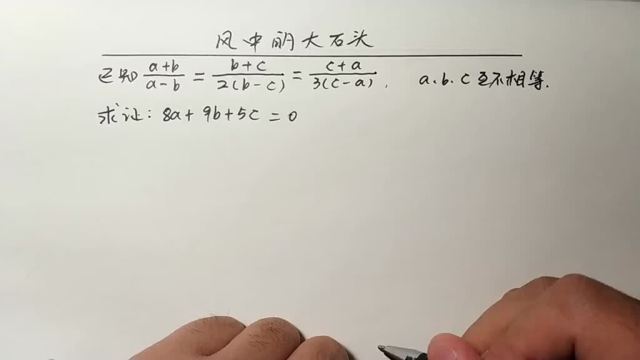 风中的大石头
已知 (a+b)/(a-b) = (b+c)/(2(b-c)) = (c+a)/(3(c-a)), a.b.c 互不相等.
求证: 8a+9b+5c=0